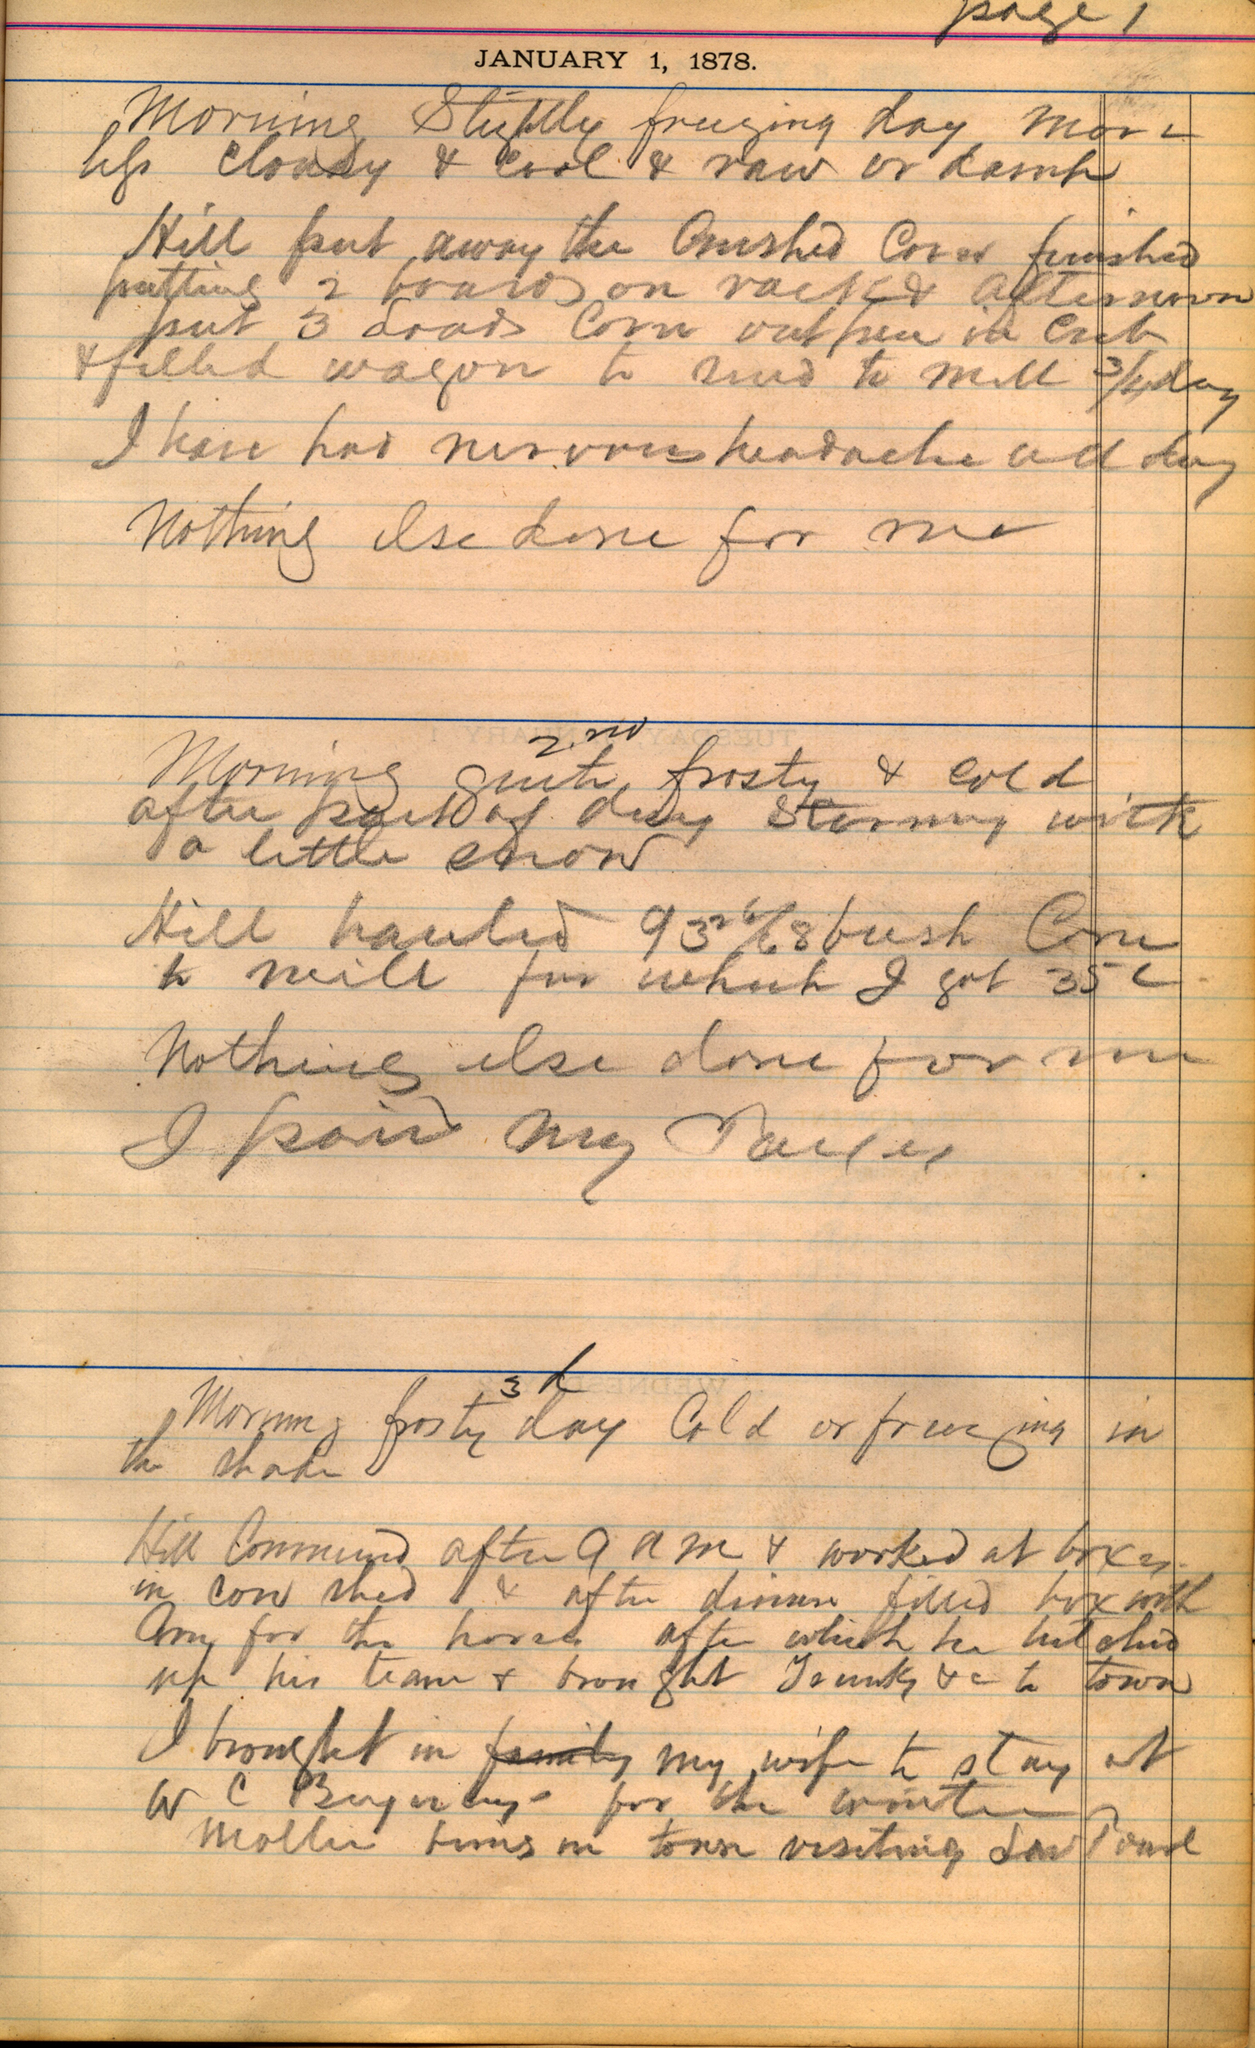 page 1
JANUARY 1, 1878.
Morning Slightly freezing day more
less cloudy & cool & raw or damp
Hill put away the Crushed Corn finished
putting 2 boards on rack & afternoon
put 3 Loads Corn in Crib
& filled wagon to send to mill 3/4 day
I have had nervous headache all day
Nothing else done for me
2nd
Morning quite frosty & cold
after part of day Stormy with
a little snow
Hill hauled 93 26/68 bush Corn
to mill for which I got 35 c
Nothing else done for me
I paid my Taxes
3d
Morning frosty day Cold or freezing in
the shade
Hill Commenced after 9 am & worked at boxes
in cow shed & after dinner filled box with
for the horses after which he hitched
up his team & brought Trunks &c to town
I brought in family my wife to stay at
W C for the winter
Mollie being in town visiting